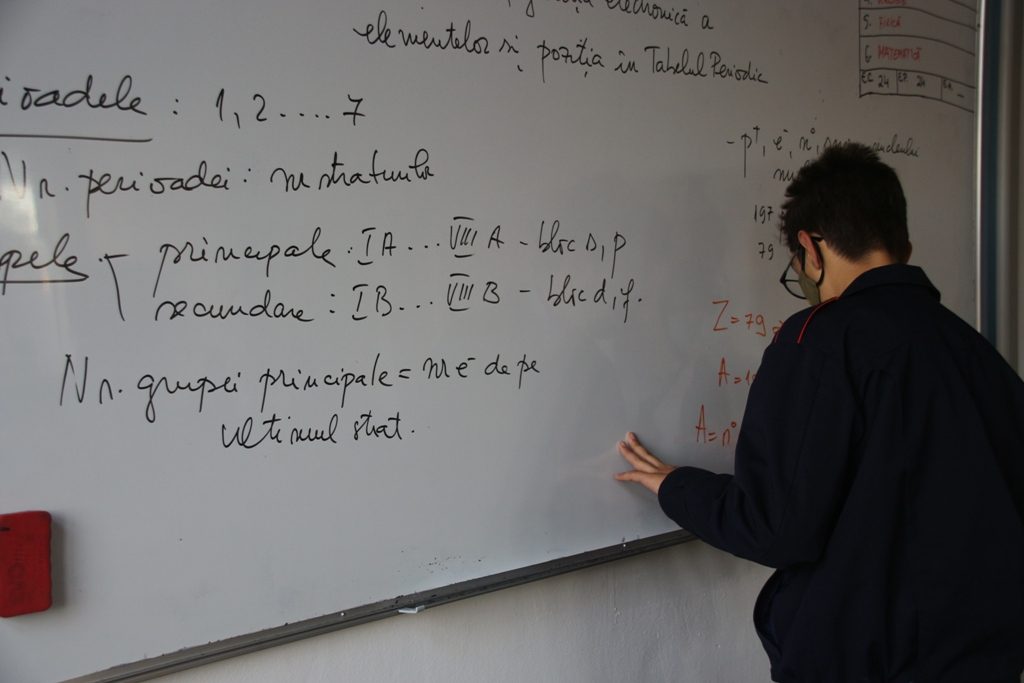 electronică a
elementelor și poziția în Tabelul Periodic
ioadele : 1, 2 .... 7
Nr. perioadei : nr straturilor
pele
principale : IA ... VIIIA - bloc s, p
secundare : IB ... VIIIB - bloc d, f.
Nr. grupei principale = nr e⁻ de pe
ultimul strat.
5. FIZICĂ
6. MATEMATICĂ
24
24
- p⁺, e⁻, n°,
197
79
Z = 79
A = 1
A = n°